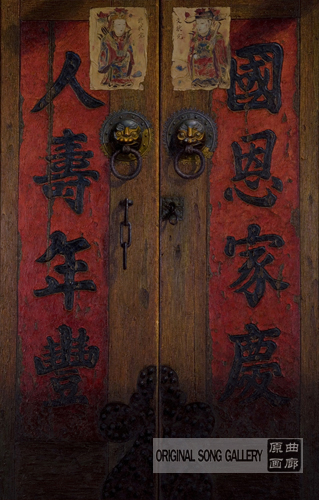 國恩家慶
人壽年豐
ORIGINAL SONG GALLERY
原曲
画廊